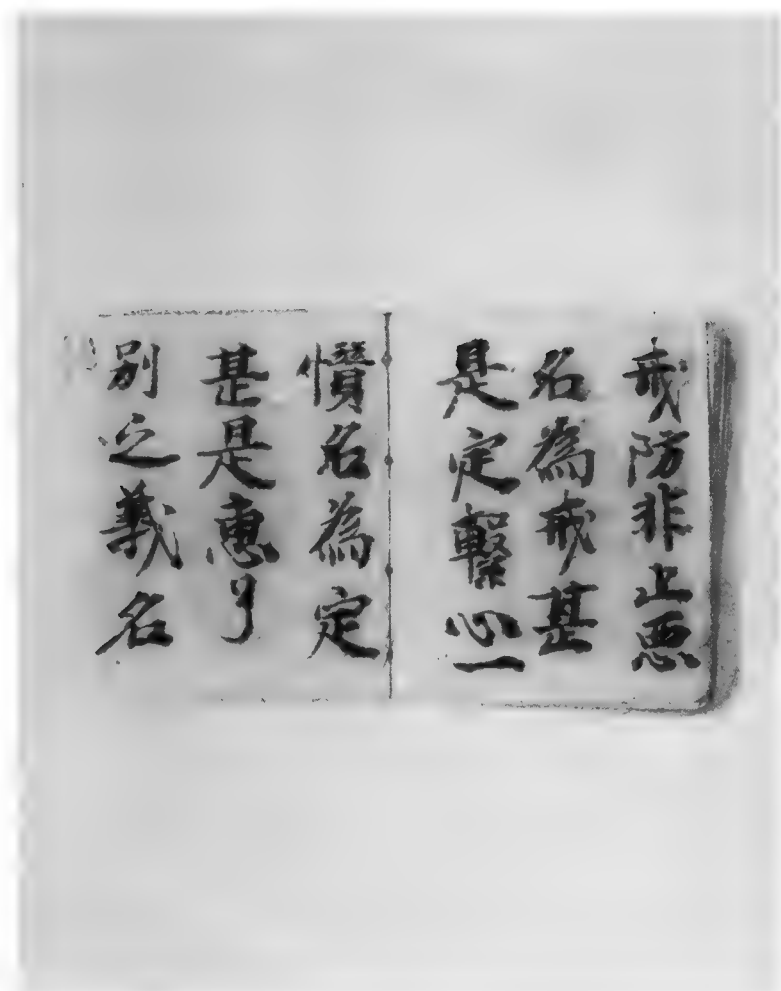 戒防非止恶
名為戒甚
是定繫心一
名為定
甚是惠了
别之義名